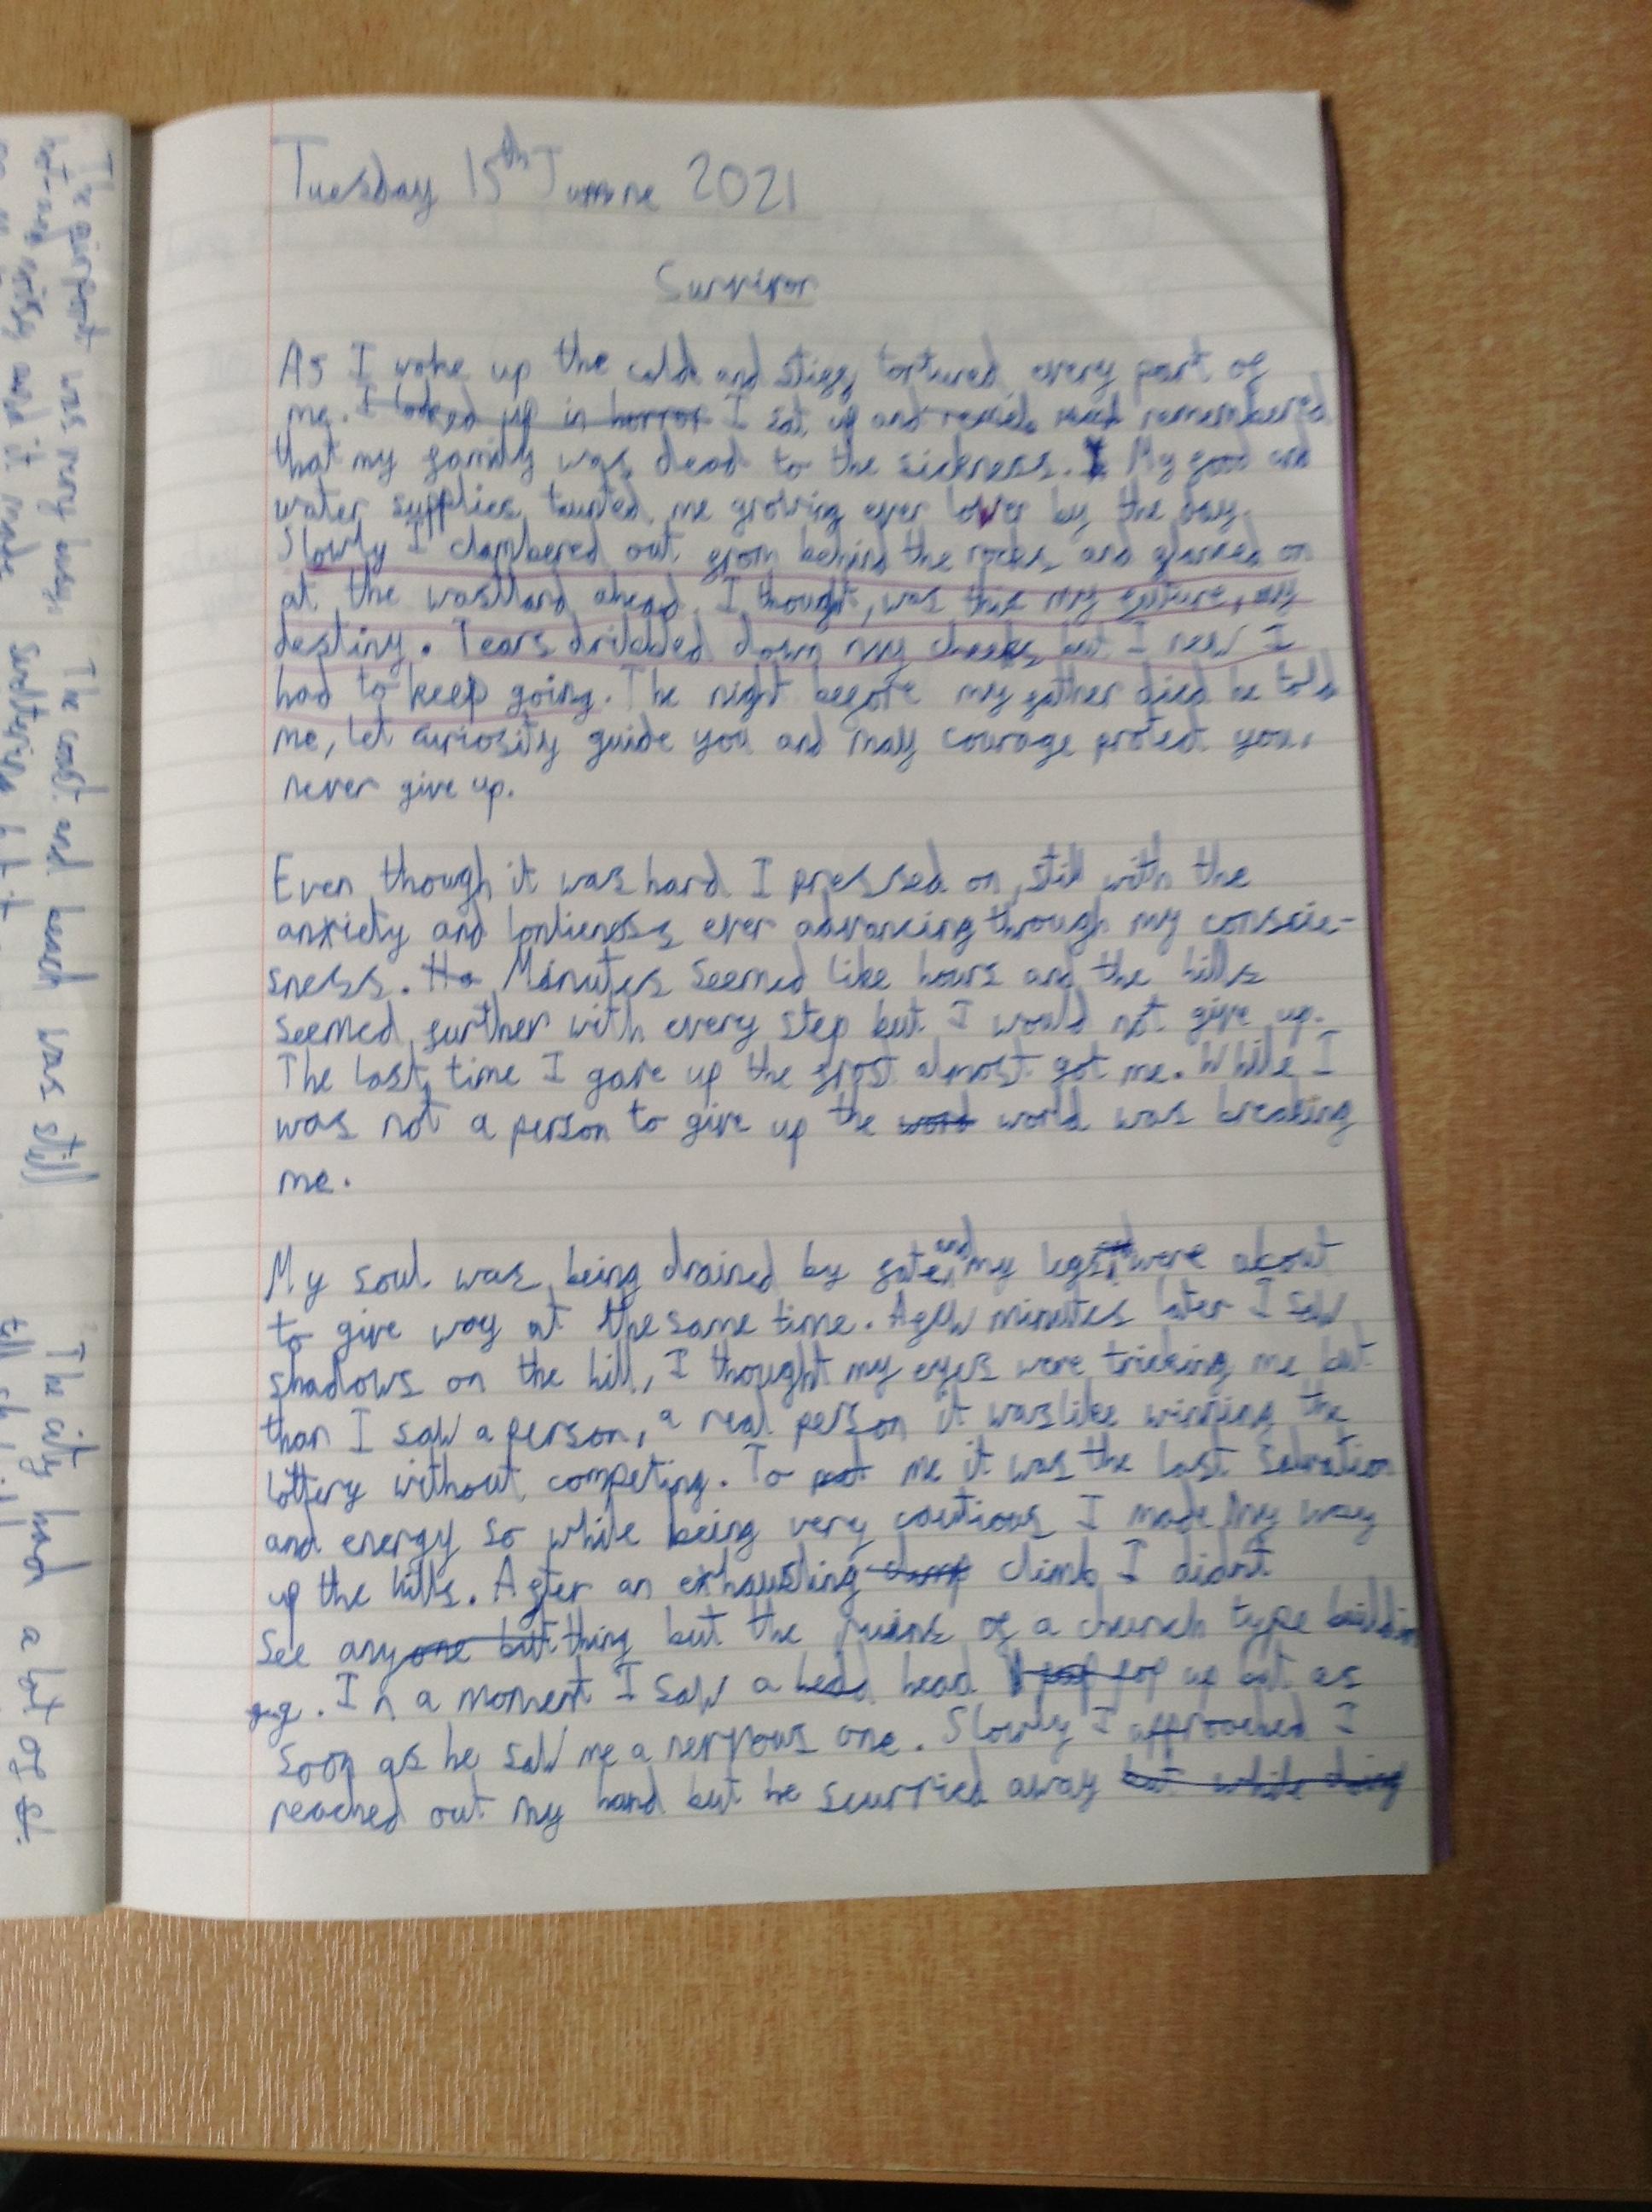 Tuesday 15th June 2021
Survivor
As I woke up the colde and stiff tortured every part of
me. I looked up in horror I sat up and remembered
that my family was dead to the sickness. My food and
water supplies taunted me growing ever lower by the day.
Slowly I clambered out from behind the rocks and glansed on
at the wastland ahead. I thought, was this my future, my
destiny. Tears dribbled down my cheeks but I new I
had to keep going. The night before my father died he told
me, let curiosity guide you and may courage protect you,
never give up.
Even though it was hard I pressed on, still with the
anxiety and lonlieness ever advancing through my conscie-
sness. Ho Minutes seemed like hours and the hills
seemed further with every step but I would not give up.
The last time I gave up the frost almost got me. While I
was not a person to give up the word world was breaking
me.
My soul was being drained by fate, and my legs were about
to give way at the same time. A few minutes later I saw
shadows on the hill, I thought my eyes were tricking me but
than I saw a person, a real person it was like winning the
lottery without competing. To me it was the last Salvation
and energy so while being very coutious I made my way
up the hills. After an exhausting climb I didnt
see anyone but thing but the ruins of a church type buildin
g. In a moment I saw a head pop up but as
soon as he saw me a nervous one. Slowly I approached I
reached out my hand but he scurried away but while doing
The airport was very busy
The coast and beach was still
The city had a lot of